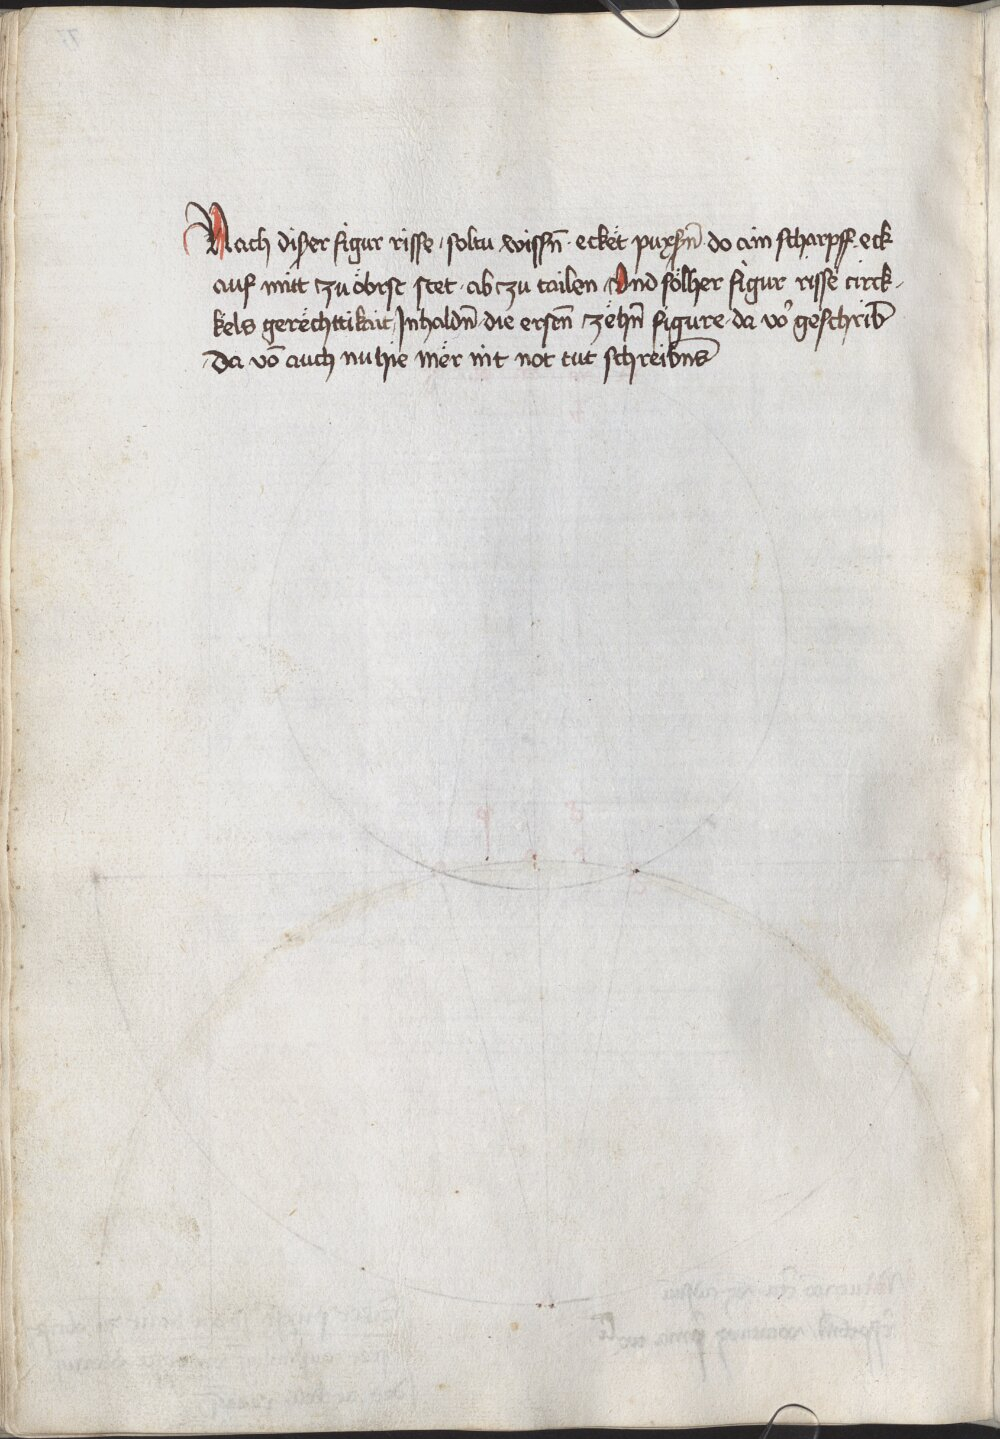 Nach dißer figur risse · soltu wissn̄ · ecket̄ puxsn̄ · do aim scharpff eck
auf mitt czu öbrst stet · ab czu tailen · Und sölher figur risse circk-
kels gerëchttikait Jnhaldn̄ · die erstn̄ czëhn̄ figure · da vo᷑ geschrib̄
· Da vō auch nu hie mër nit not tut schreibn̄s